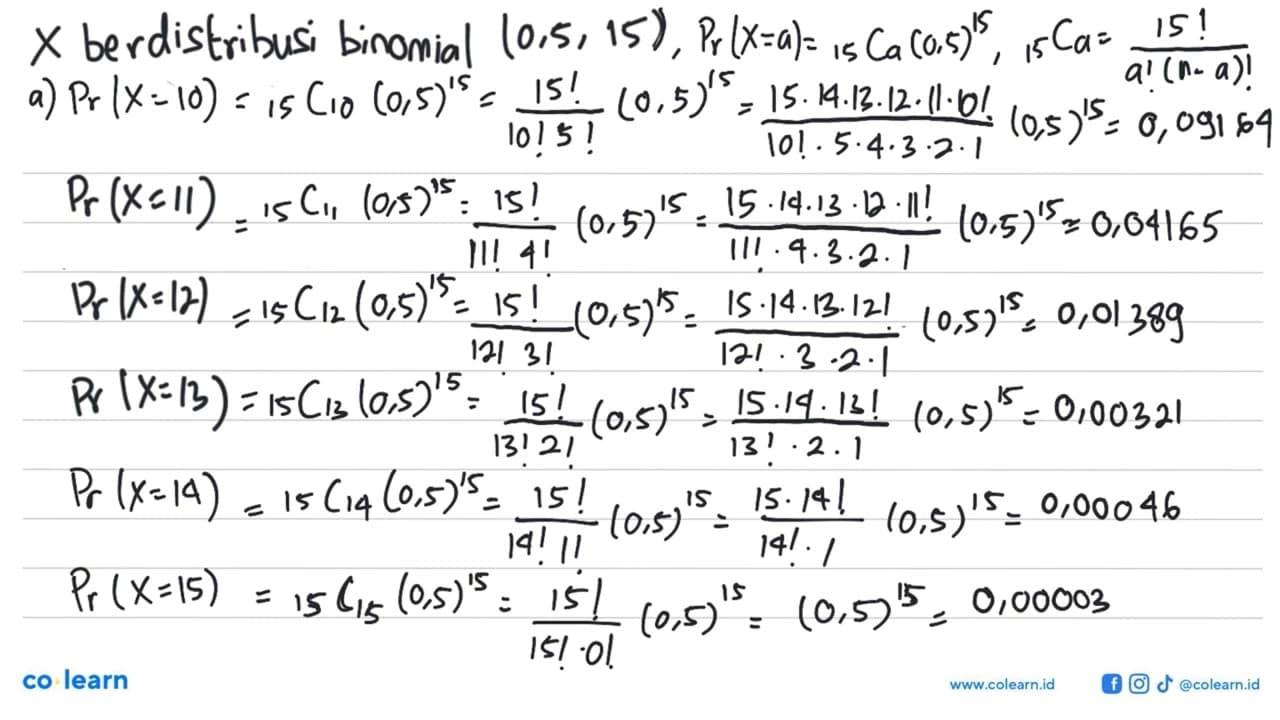 X berdistribusi binomial (0,5, 15), Pr(X=a)= ₁₅Ca (0,5)¹⁵, ₁₅Ca= 15! / a! (n-a)!
a) Pr(X=10) = ₁₅C₁₀ (0,5)¹⁵ = 15! / 10! 5! (0,5)¹⁵ = 15.14.13.12.11.10! / 10! . 5.4.3.2.1 (0,5)¹⁵ = 0,09164
Pr(X=11) = ₁₅C₁₁ (0,5)¹⁵ = 15! / 11! 4! (0,5)¹⁵ = 15.14.13.12.11! / 11! . 4.3.2.1 (0,5)¹⁵ = 0,04165
Pr(X=12) = ₁₅C₁₂ (0,5)¹⁵ = 15! / 12! 3! (0,5)¹⁵ = 15.14.13.12! / 12! . 3.2.1 (0,5)¹⁵ = 0,01389
Pr(X=13) = ₁₅C₁₃ (0,5)¹⁵ = 15! / 13! 2! (0,5)¹⁵ = 15.14.13! / 13! . 2.1 (0,5)¹⁵ = 0,00321
Pr(X=14) = ₁₅C₁₄ (0,5)¹⁵ = 15! / 14! 1! (0,5)¹⁵ = 15.14! / 14! . 1 (0,5)¹⁵ = 0,00046
Pr(X=15) = ₁₅C₁₅ (0,5)¹⁵ = 15! / 15! . 0! (0,5)¹⁵ = (0,5)¹⁵ = 0,00003
co learn
www.colearn.id @colearn.id